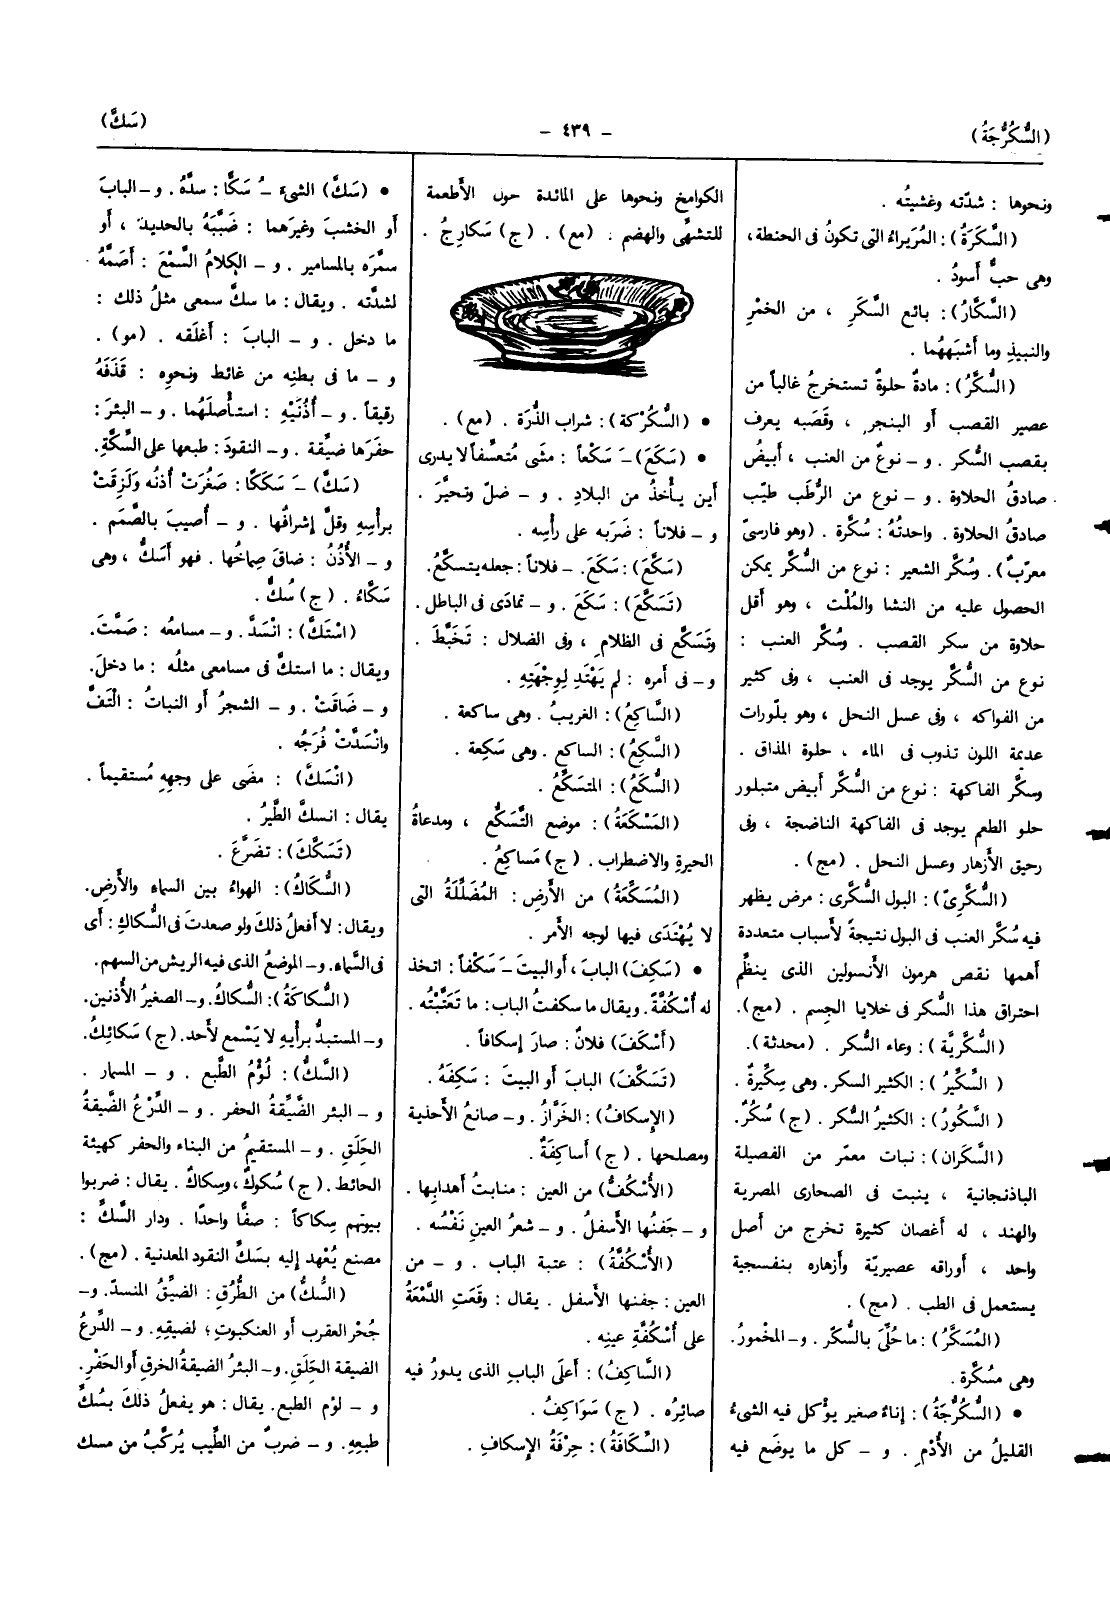 (السُّكُرُّجَةُ)
– ٤٣٩ –
(سَكَّ)
ونحوها : شدّته وغشيتُه .
(السَّكَرَةُ) : المُرَيراءُ التى تكونُ فى الحنطة ،
وهى حبٌّ أسودُ .
(السَّكَّارُ) : بائع السَّكَرِ ، من الخمْرِ
والنبيذِ وما أشبَههُما .
(السُّكَّرُ) : مادةٌ حلوةٌ تستخرجُ غالباً من
عصير القصب أو البنجر ، وقَصَبه يعرف
بقصب السُّكر . و – نوعٌ من العنب ، أبيضُ
صادقُ الحلاوة . و – نوع من الرُّطَب طيّب
صادقُ الحلاوة . واحدتُهُ : سُكَّرة . (وهو فارسىّ
معرّبٌ) . وسُكَّر الشعير : نوع من السُّكَّر يمكن
الحصول عليه من النشا والمُلْت ، وهو أقل
حلاوة من سكر القصب . وسُكَّر العنب :
نوع من السُّكَّر يوجد فى العنب ، وفى كثير
من الفواكه ، وفى عسل النحل ، وهو بلّورات
عديمة اللون تذوب فى الماء ، حلوة المذاق .
وسكَّر الفاكهة : نوع من السُّكَّر أبيض متبلور
حلو الطعم يوجد فى الفاكهة الناضجة ، وفى
رحيق الأزهار وعسل النحل . (مج) .
(السُّكَّرِىّ) : البول السُّكَّرى : مرض يظهر
فيه سُكَّر العنب فى البول نتيجةً لأسباب متعددة
أهمها نقص هرمون الأنسولين الذى ينظِّم
احتراق هذا السُّكر فى خلايا الجِسم . (مج) .
(السُّكَّرِيَّة) : وعاء السُّكر . (محدثة) .
(السِّكِّيرُ) : الكثير السكر . وهى سِكِّيرةٌ .
(السَّكُورُ) : الكثيرُ السُّكر . (ج) سُكُرٌ .
(السَّكَران) : نبات معمّر من الفصيلة
الباذنجانية ، ينبت فى الصحارى المصرية
والهند ، له أغصان كثيرة تخرج من أصل
واحد ، أوراقه عصيريّة وأزهاره بنفسجية
يستعمل فى الطب . (مج) .
(المُسَكَّرُ) : ما حُلِّىَ بالسُّكّر . و – المخْمورُ .
وهى مسُكَّرة .
• (السُّكُرُّجَةُ) : إناءٌ صغير يؤكل فيه الشىءُ
القليلُ من الأُدْمِ . و – كل ما يوضَع فيه
الكوامخ ونحوها على المائدة حول الأطعمة
للتشهِّى والهضم . (مع) . (ج) سَكارِجُ .
• (السُّكُرْكة) : شراب الذُّرَة . (مع) .
• (سَكَعَ) ـَ سَكْعاً : مشَى مُتعسِّفاً لا يدرى
أين يأخذُ من البلادِ . و – ضلّ وتحيَّرَ .
و – فلاناً : ضَرَبه على رأسِه .
(سَكَّعَ) : سَكَعَ . – فلاناً : جعله يتسكَّعُ .
(تَسَكَّعَ) : سَكَعَ . و – تمادَى فى الباطل .
وتَسَكَّع فى الظلامِ ، وفى الضلال : تَخَبَّطَ .
و – فى أمره : لم يَهْتَدِ لِوِجْهَتِهِ .
(السَّاكِعُ) : الغريبُ . وهى ساكعة .
(السَّكِعُ) : الساكع . وهى سَكِعة .
(السُّكَعُ) : المتسَكِّعُ .
(المَسْكَعَةُ) : موضع التَّسَكُّع ، ومدعاةُ
الحيرةِ والاضطراب . (ج) مَساكِعُ .
(المُسَكِّعَةُ) من الأرضِ : المُضَلِّلَةُ التى
لا يُهْتَدَى فيها لوجه الأمر .
• (سَكِفَ) البابَ ، أو البيتَ ـَ سَكْفاً : اتخذ
له أُسْكُفَّةً . ويقال ما سكفتُ البابَ : ما تَعَتَّبْتُه .
(أَسْكَفَ) فلانٌ : صارَ إسكافاً .
(تَسَكَّفَ) البابَ أو البيتَ : سَكِفَهُ .
(الإسكافُ) : الخَرَّازُ . و – صانعُ الأحذية
ومصلحها . (ج) أساكِفَةٌ .
(الأُسْكُفُّ) من العين : منابتُ أهدابِها .
و – جَفنُها الأسفلُ . و – شعرُ العينِ نَفْسُه .
(الأُسْكُفَّةُ) : عتبة الباب . و – من
العين : جفنها الأسفل . يقال : وقَعَتِ الدَّمْعَةُ
على أُسْكُفَّةِ عينِه .
(السَّاكِفُ) : أعلَى البابِ الذى يدورُ فيه
صائِرُه . (ج) سَوَاكِفُ .
(السِّكَافَةُ) : حِرْفَةُ الإسكافِ .
• (سَكَّ) الشىءَ ـُ سَكًّا : سدَّهُ . و – البابَ
أو الخشبَ وغيرَهما : ضَبَّبَهُ بالحديدَ ، أو
سمَّرَه بالمسامير . و – الكلامُ السَّمْعَ : أصَمَّهُ
لشدَّته . ويقال : ما سكَّ سمعى مثلُ ذلك :
ما دخل . و – البابَ : أغلَقه . (مو) .
و – ما فى بطنِه من غائط ونحوِه : قَذَفَهُ
رقيقاً . و – أُذُنَيْهِ : استأْصلَهُما . و – البئرَ :
حفرَها ضيِّقة . و – النقودَ : طبعها على السِّكَّةِ .
(سَكَّ) ـَ سَكَكًا : صَغُرَتْ أُذنُه ولَزِقَتْ
برأسِه وقلَّ إشرافُها . و – أُصيبَ بالصَّمَم .
و – الأُذُنُ : ضاقَ صِماخُها . فهو أَسَكُّ ، وهى
سَكَّاءُ . (ج) سُكٌّ .
(اسْتَكَّ) : انْسَدَّ . و – مسامعُه : صَمَّتْ .
ويقال : ما استكَّ فى مسامعى مثلُه : ما دخلَ .
و – ضَاقَتْ . و – الشجرُ أو النباتُ : الْتَفَّ
وانْسَدَّتْ فُرَجُه .
(انْسَكَّ) : مضَى على وجههِ مُستقيماً .
يقال : انسكَّ الطَّيرُ .
(تَسَكَّكَ) : تضَرَّعَ .
(السُّكَاكُ) : الهواءُ بين السماءِ والأرضِ .
ويقال : لا أفعلُ ذلكَ ولو صعدتَ فى السُّكاكِ : أى
فى السَّماءِ . و – الموضعُ الذى فيه الريش من السهم .
(السُّكاكَةُ) : السُّكاكُ . و – الصغيرُ الأُذنين .
و – المستبدُّ برأيِهِ لا يَسْمع لأحد . (ج) سَكائِكُ .
(السَّكُّ) : لُؤْمُ الطَّبع . و – المسمار .
و – البئر الضَّيِّقةُ الحفر . و – الدِّرْعُ الضَّيقةُ
الحَلَقِ . و – المستقيمُ من البناء والحفر كهيئة
الحائط . (ج) سُكوكٌ ، وسِكاكٌ . يقال : ضربوا
بيوتهم سِكاكاً : صفًّا واحدًا . ودار السَّكِّ :
مصنع يُعْهد إليه بسَكِّ النقود المعدنية . (مج) .
(السُّكُّ) من الطُّرُقِ : الضيِّقُ المنسدّ . و –
جُحْر العقرب أو العنكبوتِ ؛ لضيقِهِ . و – الدِّرعُ
الضيقة الحَلَقِ . و – البئرُ الضيقةُ الخرقِ أو الحَفْرِ .
و – لؤم الطبع . يقال : هو يفعلُ ذلكَ بسُكِّ
طبعِهِ . و – ضربٌ من الطِّيبِ يُركَّبُ من مسك